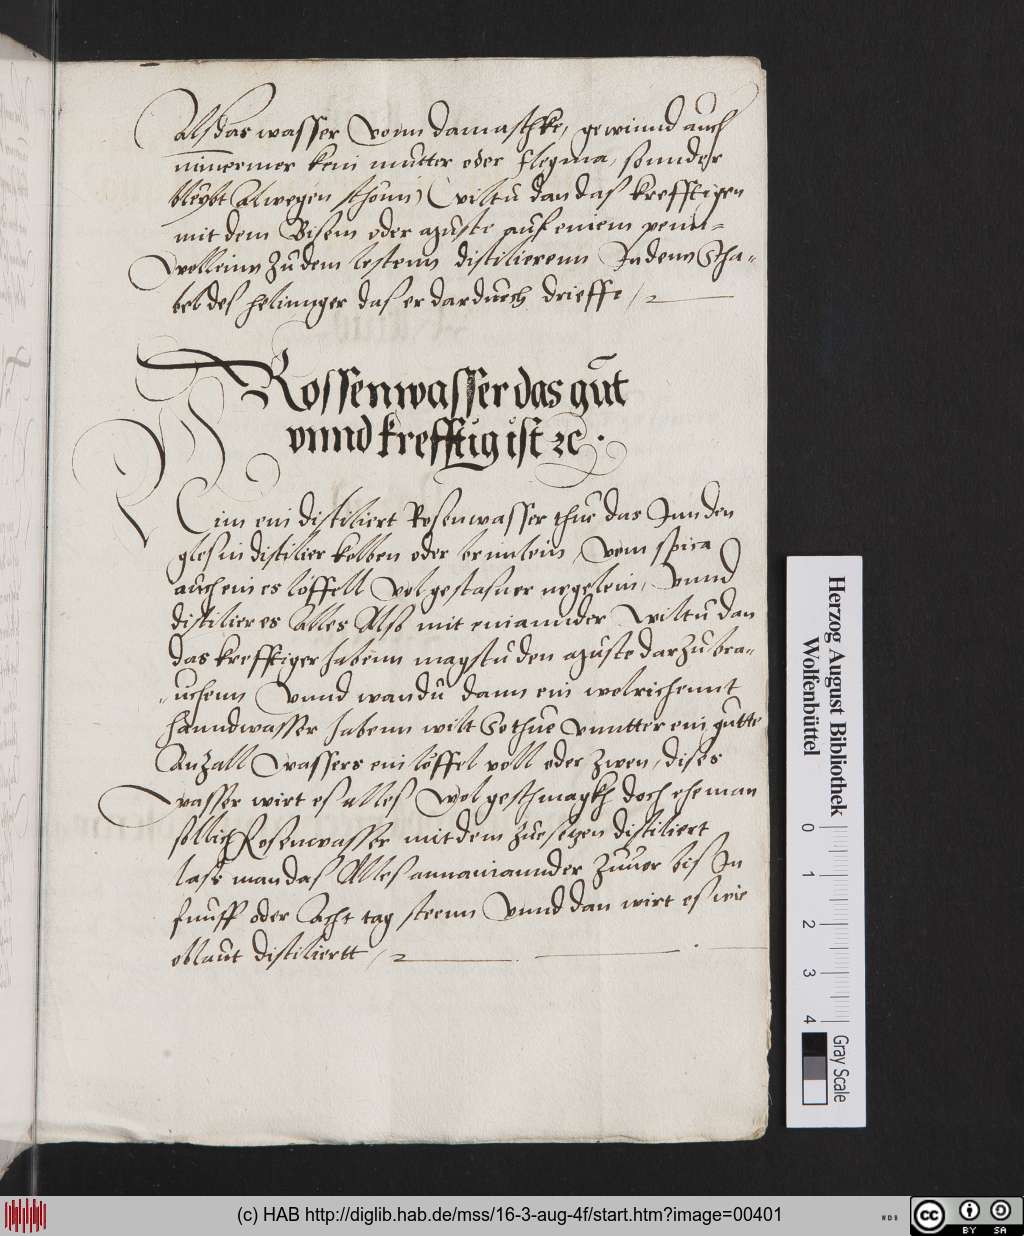 Alß das wasser vonn damasthke, gewinnd auch
nimermer kein mutter oder flegma, sonnder
bleybt alwegen schönn, wiltu dan das krefftigen
mit dem Bisem oder azuste auf einem penn-
wollein zu dem lestenn distilierenn In dem Schna-
bel des helmger das er dardurch drieffe
Rossenwasser das gůt
vnnd krefftig ist ꝛc.
Nim ein distiliert Rosenwasser thue das Inn den
glesin distilier kolben oder, vom spica
auch eines löffell vol gestosner negelein, vnnd
distilier es alles Also mit einannder wiltu dan
das krefftiger habenn magstu den azuste darzu bra-
uchenn vnnd wan du dann ein wolrichennt
hanndwasser habenn wilt So thue vnntter ein gutte
Anzall wassers ein löffel voll oder zwen, dises
wasser wirt es alles wol geschmagkh doch ehe man
sollich Rosenwasser mit dem zuesetzen distiliert
lass man das Alles annainannder zuuor bis In
funff oder Acht tag steenn vnnd dan wirt es wie
oblaut distiliertt
Herzog August Bibliothek
Wolfenbüttel
0 1 2 3 4
Gray Scale
(c) HAB http://diglib.hab.de/mss/16-3-aug-4f/start.htm?image=00401
WDB
cc BY SA